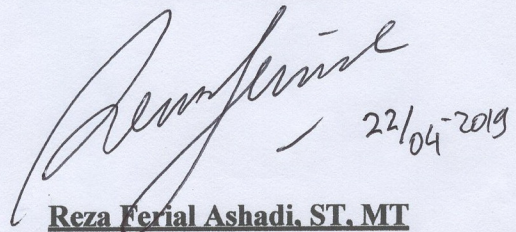 22/04-2019
Reza Ferial Ashadi, ST, MT